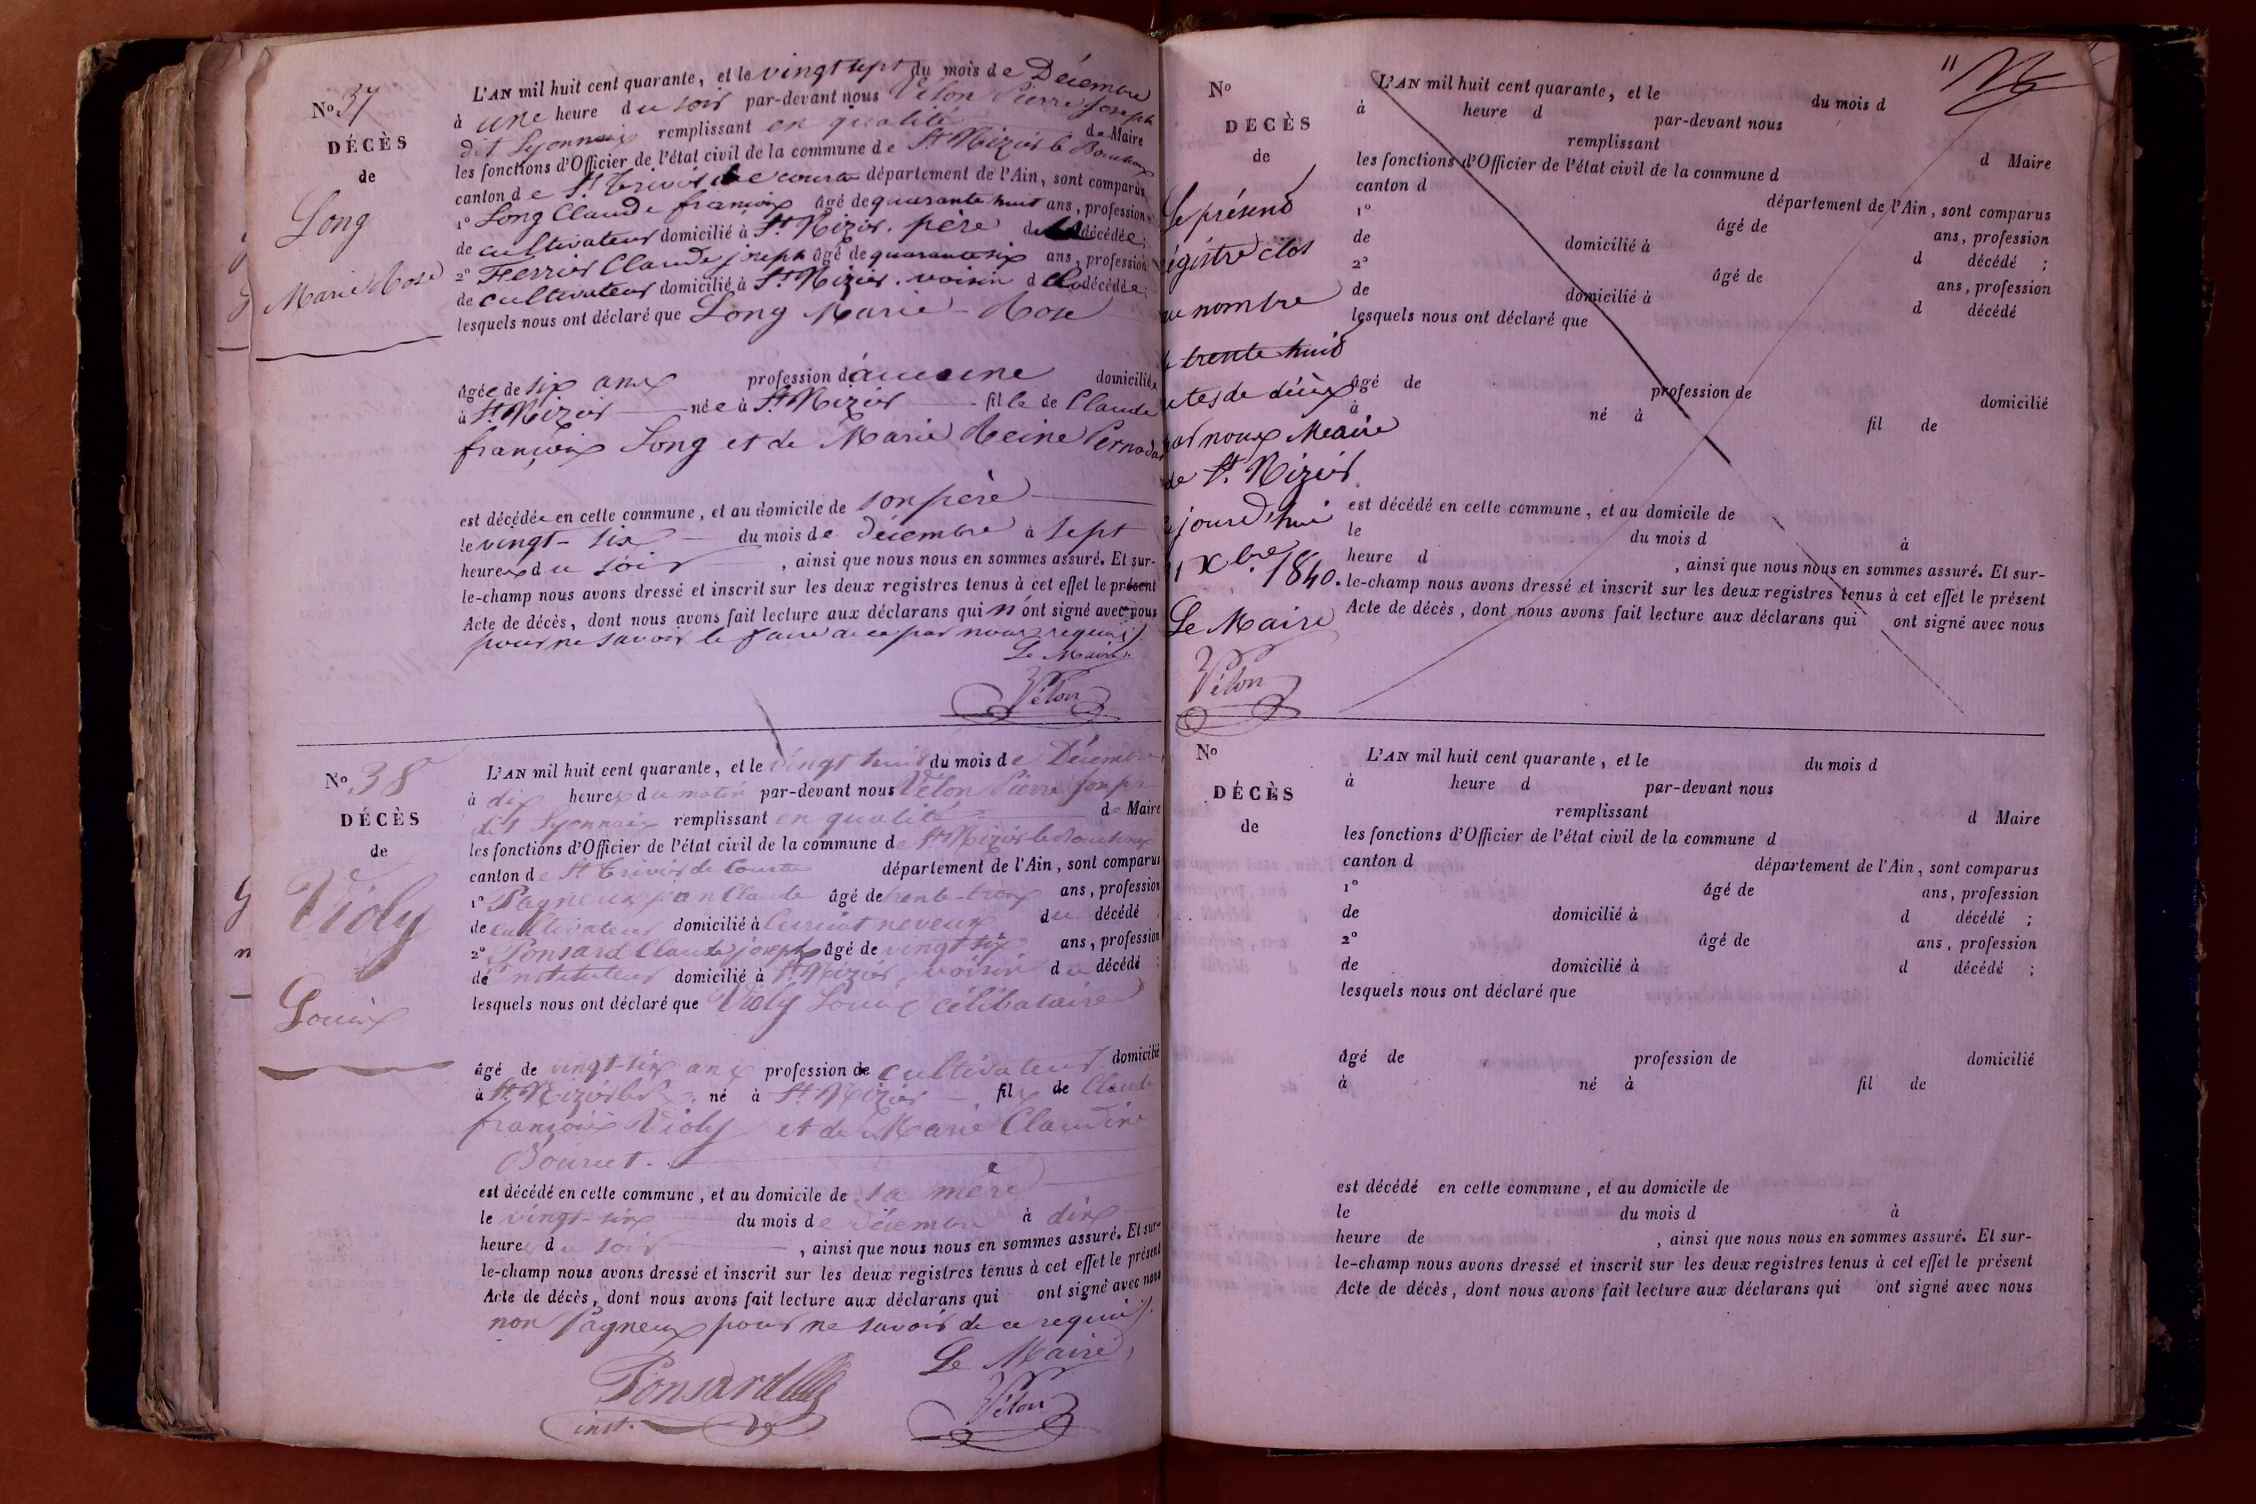 N.º 37
DÉCÈS
de
Long
Marie Rose
L'AN mil huit cent quarante, et le vingt sept du mois de Décembre
à une heure du soir par-devant nous Vélon Pierre Joseph
dit Lyonnais remplissant en qualité de Maire
les fonctions d'Officier de l'état civil de la commune de St Nizier le Bouchoux
canton de St Trivier de courtes département de l'Ain, sont comparus
1º Long Claude françois âgé de quarante huit ans, profession
de cultivateur domicilié à St Nizier. père de la décédée;
2º Ferrier Claude joseph âgé de quarante six ans, profession
de cultivateur domicilié à St Nizier. voisin de la décédée;
lesquels nous ont déclaré que Long Marie-Rose
âgée de six ans profession d'aucune domiciliée
à St Nizier née à St Nizier fille de Claude
françois Long et de Marie Reine
est décédée en cette commune, et au domicile de son père
le vingt-six du mois de décembre à sept
heures du soir, ainsi que nous nous en sommes assuré. Et sur-
le-champ nous avons dressé et inscrit sur les deux registres tenus à cet effet le présent
Acte de décès, dont nous avons fait lecture aux déclarans qui n'ont signé avec nous
pour ne savoir le faire de ce par nous requis
Le Maire
Vélon
N.º 38
DÉCÈS
de
Violy
Louis
L'AN mil huit cent quarante, et le vingt huit du mois de Décembre
à dix heures du matin par-devant nous Vélon Pierre Joseph
dit Lyonnais remplissant en qualité de Maire
les fonctions d'Officier de l'état civil de la commune de St Nizier le Bouchoux
canton de St Trivier de Courtes département de l'Ain, sont comparus
1º Pagneux jean Claude âgé de trente-trois ans, profession
de cultivateur domicilié à Curciat neveux du décédé
2º Ponsard Claude joseph âgé de vingt six ans, profession
d'instituteur domicilié à St Nizier, voisin du décédé;
lesquels nous ont déclaré que Violy Louis célibataire
âgé de vingt-six ans profession de cultivateur domicilié
à St Nizier né à St Nizier fils de Claude
françois Violy et de Marie Claudine
Bourcet.
est décédé en cette commune, et au domicile de sa mère
le vingt-six du mois de décembre à dix
heures du soir, ainsi que nous nous en sommes assuré. Et sur-
le-champ nous avons dressé et inscrit sur les deux registres tenus à cet effet le présent
Acte de décès, dont nous avons fait lecture aux déclarans qui ont signé avec nous
non Pagneux pour ne savoir de ce requis.
Le Maire,
Ponsard
inst.
Vélon
11
Nº
DÉCÈS
de
Le présent
régistre clos
au nombre
trente huit
actes de décès
par nous Maire
de St. Nizier
jourd'hui
Xbre 1840.
Le Maire
Vélon
L'AN mil huit cent quarante, et le du mois d
à heure d par-devant nous
remplissant d Maire
les fonctions d'Officier de l'état civil de la commune d
canton d département de l'Ain, sont comparus
1º âgé de ans, profession
de domicilié à d décédé ;
2º âgé de ans, profession
de domicilié à d décédé
lesquels nous ont déclaré que
âgé de profession de domicilié
à né à fil de
est décédé en cette commune, et au domicile de
le du mois d à
heure d , ainsi que nous nous en sommes assuré. Et sur-
le-champ nous avons dressé et inscrit sur les deux registres tenus à cet effet le présent
Acte de décès, dont nous avons fait lecture aux déclarans qui ont signé avec nous
Nº
DÉCÈS
de
L'AN mil huit cent quarante, et le du mois d
à heure d par-devant nous
remplissant d Maire
les fonctions d'Officier de l'état civil de la commune d
canton d département de l'Ain, sont comparus
1º âgé de ans, profession
de domicilié à d décédé ;
2º âgé de ans, profession
de domicilié à d décédé ;
lesquels nous ont déclaré que
âgé de profession de domicilié
à né à fil de
est décédé en cette commune, et au domicile de
le du mois d à
heure de , ainsi que nous nous en sommes assuré. Et sur-
le-champ nous avons dressé et inscrit sur les deux registres tenus à cet effet le présent
Acte de décès, dont nous avons fait lecture aux déclarans qui ont signé avec nous